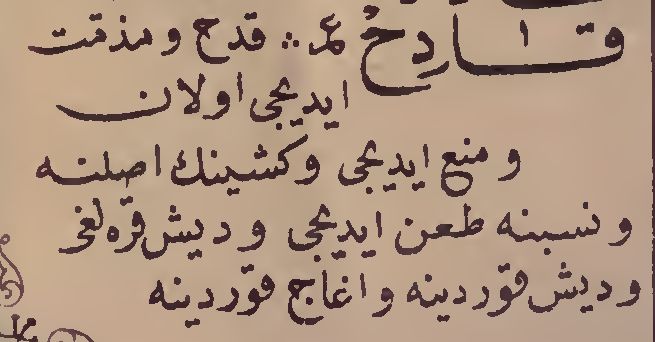 قَادِحُ عم قدح و مذمت
ايديجى اولان
و منع ايديجى و كشينك اصلنه
و نسبنه طعن ايديجى و ديش قره لغى
و ديش قوردينه و اغاج قوردينه